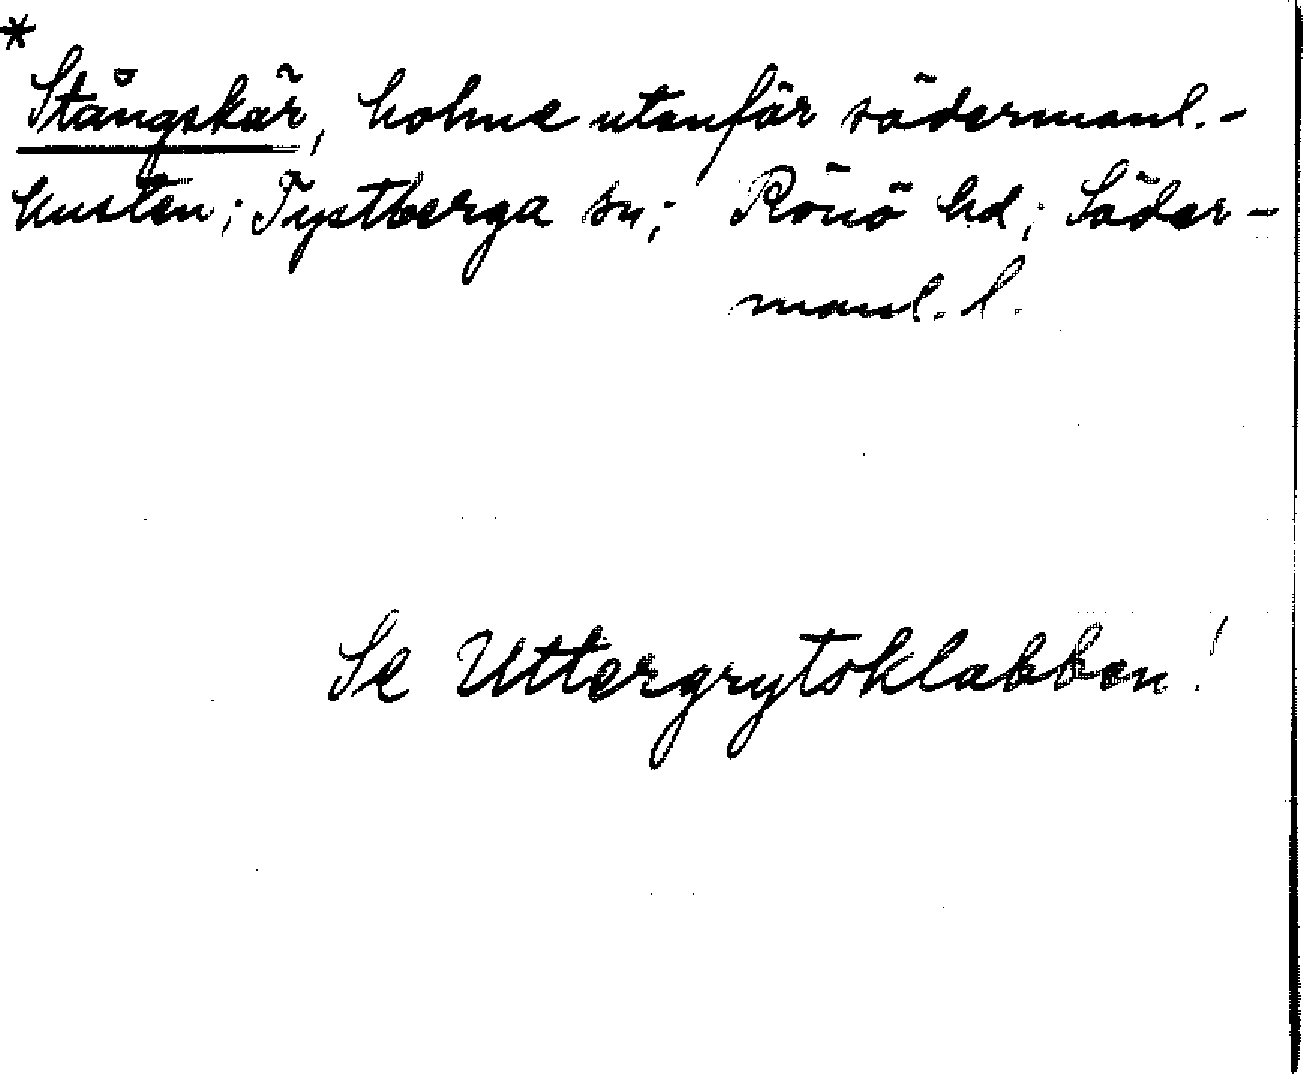 *
Stångskär, holme utanför södermanl.-
kusten; Tystberga sn; Rönö hd; Söder-
manl. l.
Se Uttergrytsklabben!